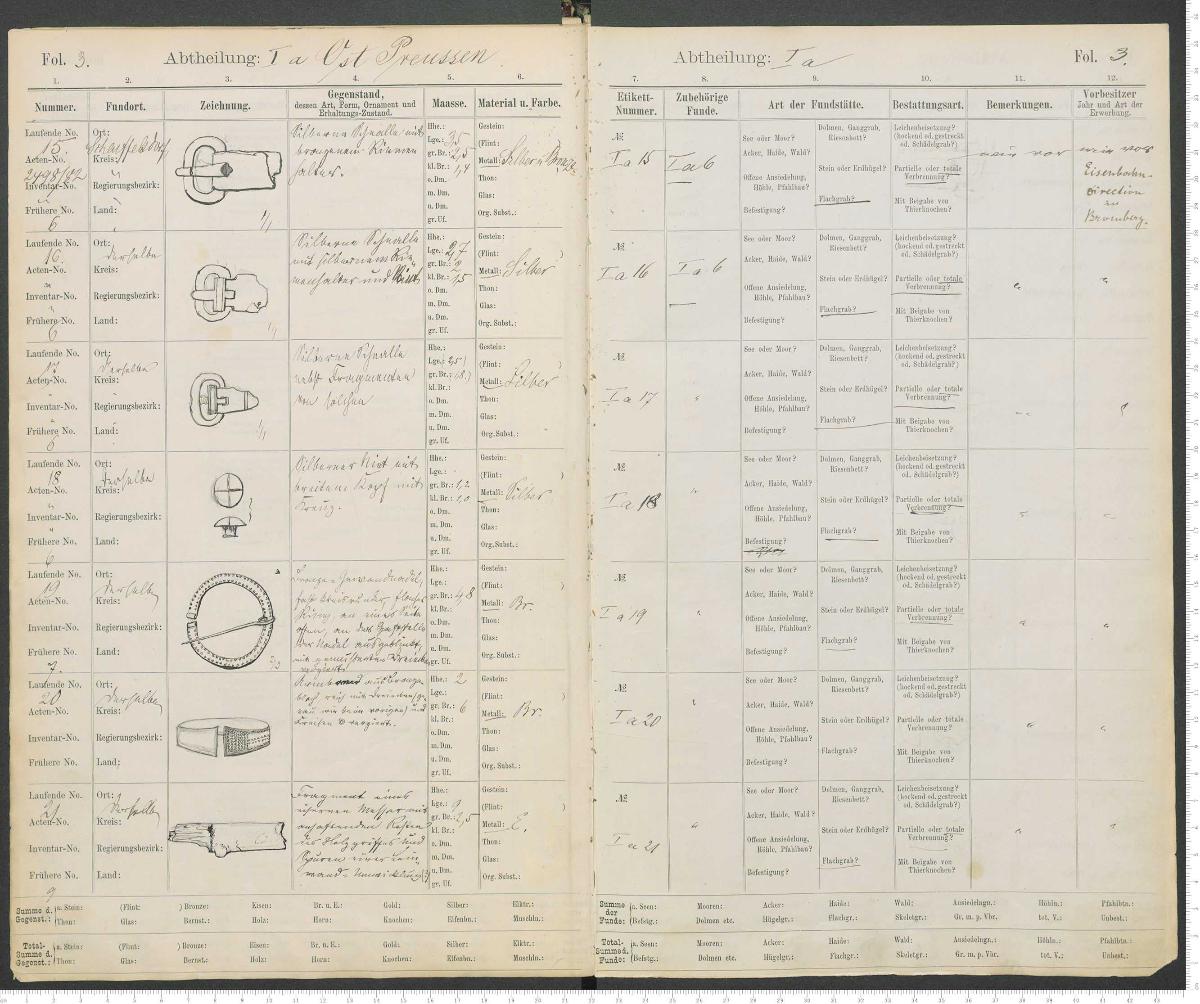 Fol. 3. Abtheilung: I a Ost Preussen.
1. 2. 3. 4. 5. 6.
Nummer. Fundort. Zeichnung. Gegenstand, dessen Art, Form, Ornament und Erhaltungs-Zustand. Maasse. Material u. Farbe.
Laufende No. 15.
Acten-No. 2498/82
Inventar-No.
Frühere No. 6
Ort:
Kreis:
Regierungsbezirk:
Land:
1/1
Silberne Schnalle mit
bronzenem Riemen
halter.
Hhe.:
Lge.: 3,5
gr. Br.: 2,5
kl. Br.: 1,4
o. Dm.
m. Dm.
u. Dm.
gr. Uf.
Gestein:
(Flint: )
Metall: Silber u Bronze.
Thon:
Glas:
Org. Subst.:
Laufende No. 16.
Acten-No.
Inventar-No.
Frühere No. 6
Ort: derselbe
Kreis:
Regierungsbezirk:
Land:
1/1
Silberne Schnalle
mit silbernem Rie-
menhalter und Niet
Hhe.:
Lge.: 2,7
gr. Br.: 2
kl. Br.: 1,5
o. Dm.
m. Dm.
u. Dm.
gr. Uf.
Gestein:
(Flint: )
Metall: Silber
Thon:
Glas:
Org. Subst.:
Laufende No. 17
Acten-No.
Inventar-No.
Frühere No. 6
Ort: derselbe
Kreis:
Regierungsbezirk:
Land:
1/1
Silberne Schnalle
nebst Fragmenten
von solchen
Hhe.:
Lge.: 2,5
gr. Br.: 1,8
kl. Br.:
o. Dm.
m. Dm.
u. Dm.
gr. Uf.
Gestein:
(Flint: )
Metall: Silber
Thon:
Glas:
Org. Subst.:
Laufende No. 18
Acten-No.
Inventar-No.
Frühere No. 6
Ort: derselbe
Kreis:
Regierungsbezirk:
Land:
Silberner Niet mit
breitem Kopf mit
Kreuz.
Hhe.:
Lge.:
gr. Br.: 1,2
kl. Br.: 1,0
o. Dm.
m. Dm.
u. Dm.
gr. Uf.
Gestein:
(Flint: )
Metall: Silber
Thon:
Glas:
Org. Subst.:
Laufende No. 19
Acten-No.
Inventar-No.
Frühere No. 7.
Ort: derselbe
Kreis:
Regierungsbezirk:
Land:
2/3
Bronze-Gewandnadel,
Hhe.:
Lge.:
gr. Br.: 4,8
kl. Br.:
o. Dm.
m. Dm.
u. Dm.
gr. Uf.
Gestein:
(Flint: )
Metall: Br.
Thon:
Glas:
Org. Subst.:
Laufende No. 20
Acten-No.
Inventar-No.
Frühere No.
Ort: derselbe
Kreis:
Regierungsbezirk:
Land:
Hhe.: 2
Lge.:
gr. Br.: 6
kl. Br.:
o. Dm.
m. Dm.
u. Dm.
gr. Uf.
Gestein:
(Flint: )
Metall: Br.
Thon:
Glas:
Org. Subst.:
Laufende No. 21
Acten-No.
Inventar-No.
Frühere No. 9
Ort: derselbe
Kreis:
Regierungsbezirk:
Land:
Fragment eines
eisernen Messers mit
anhaftenden Resten
des Holzgriffes und
Spuren einer Lein-
wand-Umwicklung(?)
Hhe.:
Lge.: 9
gr. Br.: 2,5
kl. Br.:
o. Dm.
m. Dm.
u. Dm.
gr. Uf.
Gestein:
(Flint: )
Metall: E.
Thon:
Glas:
Org. Subst.:
Summe d. Gegenst.: a. Stein: (Flint: ) Bronze: Eisen: Br. u. E.: Gold: Silber: Elktr.:
Thon: Glas: Bernst.: Holz: Horn: Knochen: Elfenbn.: Muschln.:
Total-Summe d. Gegenst.: a. Stein: (Flint: ) Bronze: Eisen: Br. u. E.: Gold: Silber: Elktr.:
Thon: Glas: Bernst.: Holz: Horn: Knochen: Elfenbn.: Muschln.:
Abtheilung: I a Fol. 3.
7. 8. 9. 10. 11. 12.
Etikett-Nummer. Zubehörige Funde. Art der Fundstätte. Bestattungsart. Bemerkungen. Vorbesitzer Jahr und Art der Erwerbung.
№ I a 15
I a 6
See oder Moor?
Acker, Haide, Wald?
Offene Ansiedelung, Höhle, Pfahlbau?
Befestigung?
Dolmen, Ganggrab, Riesenbett?
Stein oder Erdhügel?
Flachgrab?
Leichenbeisetzung? (hockend od. gestreckt od. Schädelgrab?)
Partielle oder totale Verbrennung?
Mit Beigabe von Thierknochen?
wie vor
wie vor
Eisenbahn-
Direction
zu
Bromberg.
№ I a 16
I a 6
See oder Moor?
Acker, Haide, Wald?
Offene Ansiedelung, Höhle, Pfahlbau?
Befestigung?
Dolmen, Ganggrab, Riesenbett?
Stein oder Erdhügel?
Flachgrab?
Leichenbeisetzung? (hockend od. gestreckt od. Schädelgrab?)
Partielle oder totale Verbrennung?
Mit Beigabe von Thierknochen?
№ I a 17
See oder Moor?
Acker, Haide, Wald?
Offene Ansiedelung, Höhle, Pfahlbau?
Befestigung?
Dolmen, Ganggrab, Riesenbett?
Stein oder Erdhügel?
Flachgrab?
Leichenbeisetzung? (hockend od. gestreckt od. Schädelgrab?)
Partielle oder totale Verbrennung?
Mit Beigabe von Thierknochen?
№ I a 18
See oder Moor?
Acker, Haide, Wald?
Offene Ansiedelung, Höhle, Pfahlbau?
Befestigung?
Dolmen, Ganggrab, Riesenbett?
Stein oder Erdhügel?
Flachgrab?
Leichenbeisetzung? (hockend od. gestreckt od. Schädelgrab?)
Partielle oder totale Verbrennung?
Mit Beigabe von Thierknochen?
№ I a 19
See oder Moor?
Acker, Haide, Wald?
Offene Ansiedelung, Höhle, Pfahlbau?
Befestigung?
Dolmen, Ganggrab, Riesenbett?
Stein oder Erdhügel?
Flachgrab?
Leichenbeisetzung? (hockend od. gestreckt od. Schädelgrab?)
Partielle oder totale Verbrennung?
Mit Beigabe von Thierknochen?
№ I a 20
See oder Moor?
Acker, Haide, Wald?
Offene Ansiedelung, Höhle, Pfahlbau?
Befestigung?
Dolmen, Ganggrab, Riesenbett?
Stein oder Erdhügel?
Flachgrab?
Leichenbeisetzung? (hockend od. gestreckt od. Schädelgrab?)
Partielle oder totale Verbrennung?
Mit Beigabe von Thierknochen?
№ I a 21
See oder Moor?
Acker, Haide, Wald?
Offene Ansiedelung, Höhle, Pfahlbau?
Befestigung?
Dolmen, Ganggrab, Riesenbett?
Stein oder Erdhügel?
Flachgrab?
Leichenbeisetzung? (hockend od. gestreckt od. Schädelgrab?)
Partielle oder totale Verbrennung?
Mit Beigabe von Thierknochen?
Summe der Funde: a. Seen: Mooren: Acker: Haide: Wald: Ansiedelngn.: Höhln.: Pfahlbtn.:
Befstg.: Dolmen etc. Hügelgr.: Flachgr.: Skeletgr.: Gr. m. p. Vbr. tot. V.: Unbest.:
Total-Summe d. Funde: a. Seen: Mooren: Acker: Haide: Wald: Ansiedelngn.: Höhln.: Pfahlbtn.:
Befstg.: Dolmen etc. Hügelgr.: Flachgr.: Skeletgr.: Gr. m. p. Vbr. tot. V.: Unbest.: